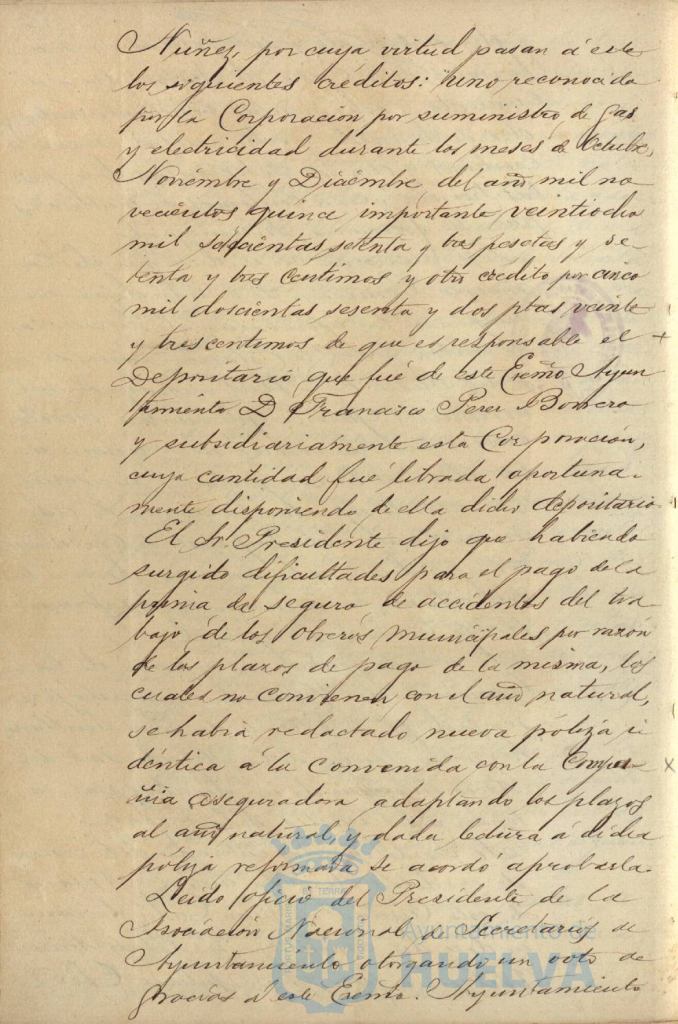 Nuñez, por cuya virtud pasan á este
los siguientes créditos: uno reconocido
por la Corporacion por suministro de gas
y electricidad durante los meses de Octubre,
Noviembre y Diciembre del año mil no
vecientos quince importante veintiocho
mil seiscientas setenta y tres pesetas y se-
tenta y tres centimos y otro crédito por cinco
mil doscientas sesenta y dos ptas veinte
y tres centimos de que es responsable el +
Depositario que fué de este Excmo. Ayun
tamiento D Francisco Perez Borrero
y subsidiariamente esta Corporación,
cuya cantidad fué librada oportuna-
mente disponiendo de ella dicho depositario
El Sr. Presidente dijo que habiendo
surgido dificultades para el pago de la
prima de seguro de accidentes del tra-
bajo de los obreros municipales por razón
de los plazos de pago de la misma, los
cuales no convienen con el año natural,
se habia redactado nueva póliza i
déntica á la convenida con la Compa- x
ñia aseguradora adaptando los plazos
al año natural, y dada lectura á dicha
póliza reformada se acordó aprobarla.
Leido oficio del Presidente de la
Asociación Nacional de Secretarios de
Ayuntamiento otorgando un voto de
gracias á este Excmo. Ayuntamiento
Ayuntamiento de
HUELVA